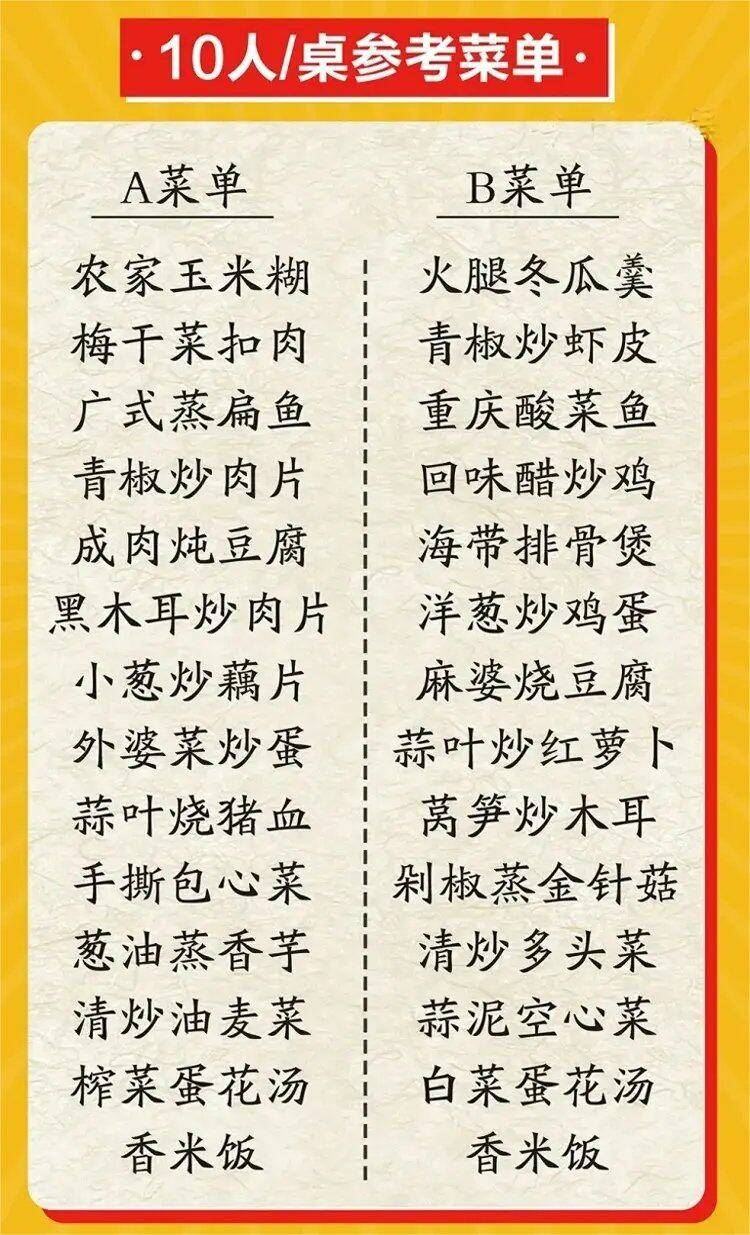 ·10人/桌参考菜单·
A菜单
农家玉米糊
梅干菜扣肉
广式蒸扁鱼
青椒炒肉片
成肉炖豆腐
黑木耳炒肉片
小葱炒藕片
外婆菜炒蛋
蒜叶烧猪血
手撕包心菜
葱油蒸香芋
清炒油麦菜
榨菜蛋花汤
香米饭
B菜单
火腿冬瓜羹
青椒炒虾皮
重庆酸菜鱼
回味醋炒鸡
海带排骨煲
洋葱炒鸡蛋
麻婆烧豆腐
蒜叶炒红萝卜
莴笋炒木耳
剁椒蒸金针菇
清炒多头菜
蒜泥空心菜
白菜蛋花汤
香米饭